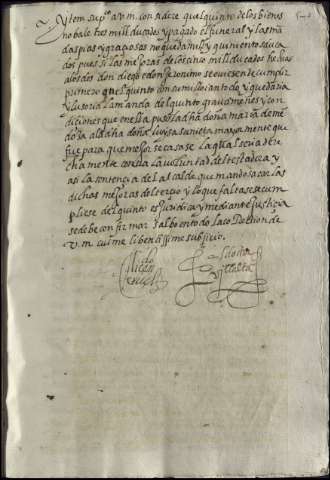 Yten supco a v. m. considere que el quinto de los bienes
no bale tres mill ducados y pagado el funeral y las man
das pias y graçiosas no queda mill y quinientos duca
dos pues si las mejoras de los cinco mill ducados hechas
a los dos don diego e don jeronimo se oviesen de cumplir
primero que el quinto consumillo an todo y quedaria
ylusoria la manda del quinto gravamenes y con
diciones que en ella puso la dha doña maria de me
doza a la dha doña luisa su nieta mayormente que
fue para que mejor se casase la qual seria dere
chamente contra la voluntad de la testadora y
asi la sentencia del alcalde que mando sacar las
dichas mejoras del tercio y lo que faltase se cum
pliese del quinto es juridica y mediante justicia
se debe confirmar salbo en todo la correction de
v. m. cui me libentissime subjicio